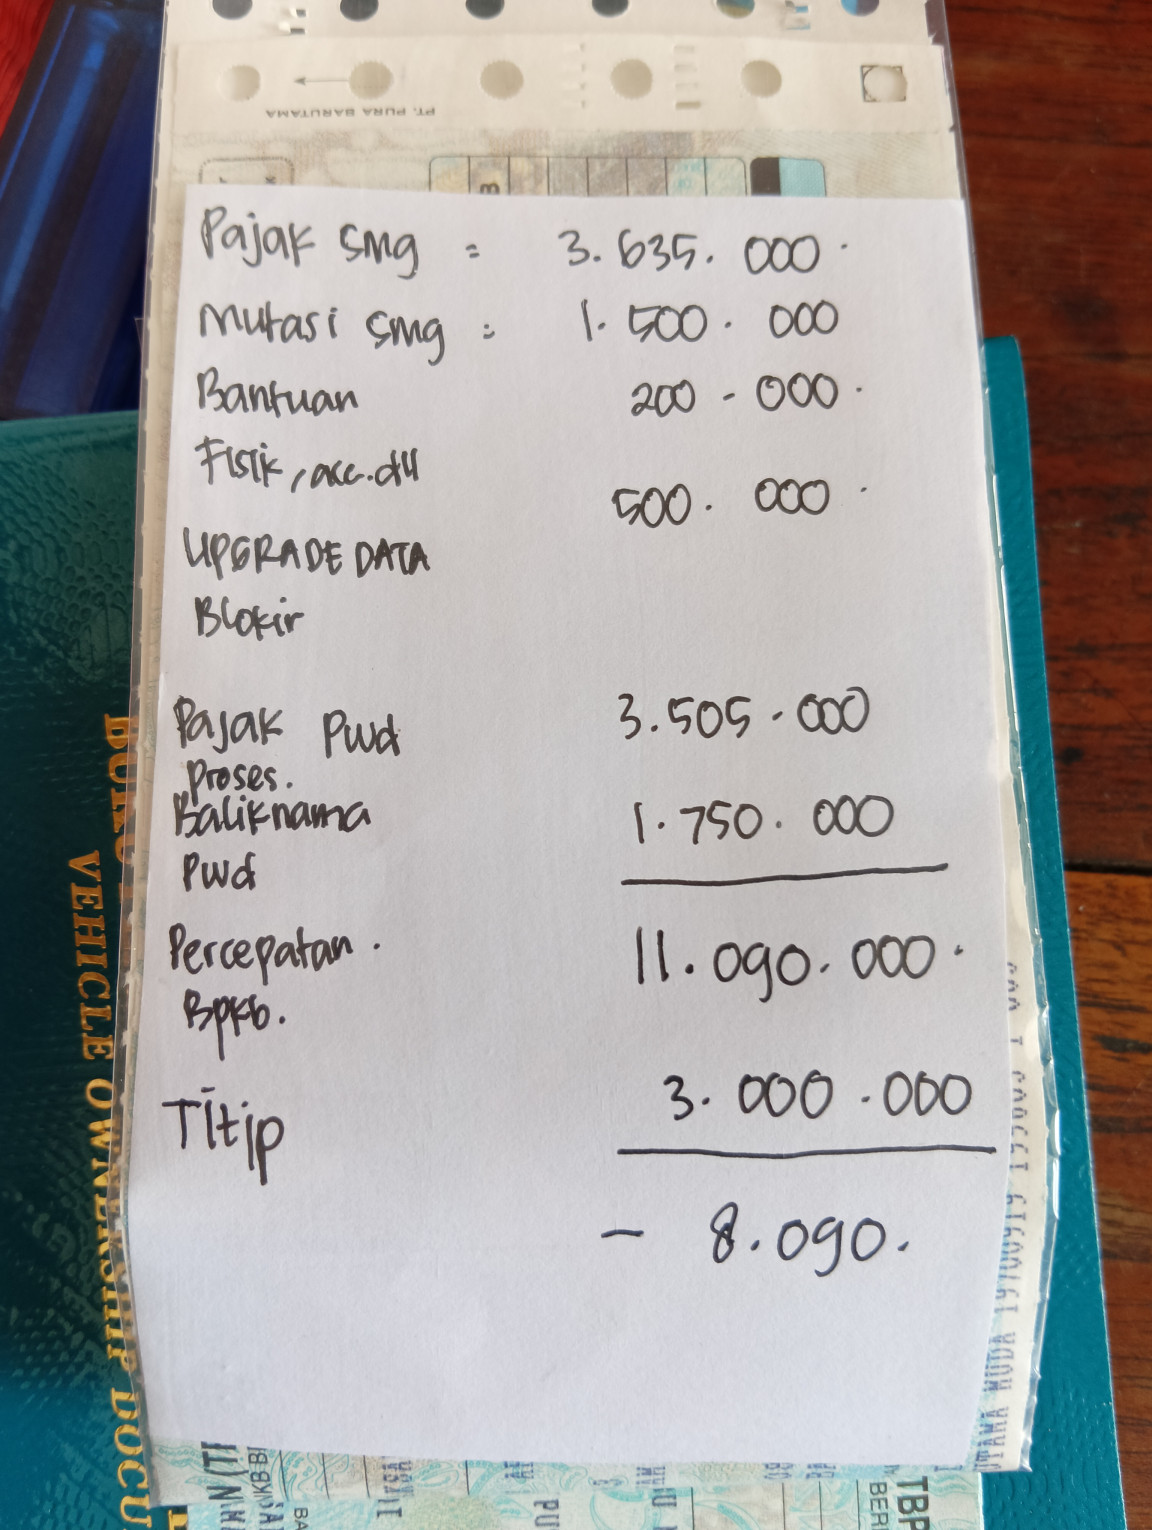 PT. PURA BARUTAMA
Pajak smg = 3.635.000.
Mutasi smg = 1.500.000
Bantuan 200-000.
Fisik, acc.dll
500.000.
UPGRADE DATA
Blokir
Pajak Pwd 3.505.000
Proses.
Baliknama 1.750.000
Pwd
Percepatan. 11.090.000.
Bpkb.
Titip 3.000.000
- 8.090.
VEHICLE OWNERSHIP DOCU